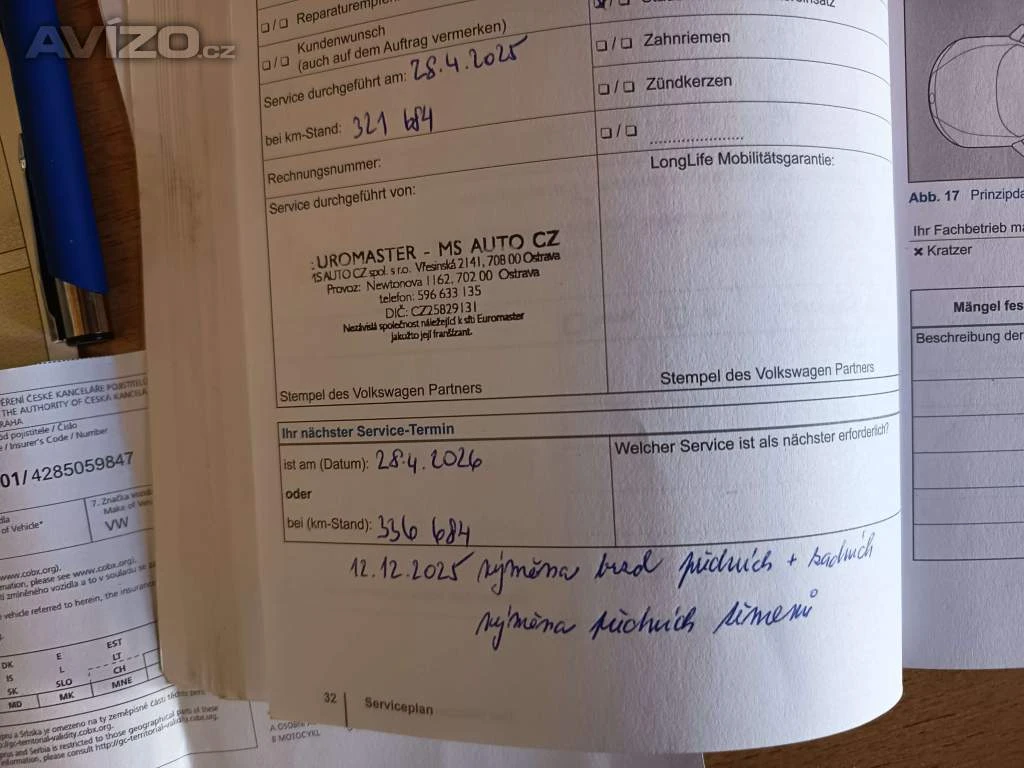 AVÍZO.cz
☐/☐ Reparaturempf
☐/☐ Kundenwunsch
(auch auf dem Auftrag vermerken)
Service durchgeführt am: 28.4.2025
bei km-Stand: 321 684
Rechnungsnummer:
Service durchgeführt von:
UROMASTER - MS AUTO CZ
MS AUTO CZ spol. s r.o. Vřesinská 2141, 708 00 Ostrava
Provoz: Newtonova 1162, 702 00 Ostrava
telefon: 596 633 135
DIČ: CZ25829131
Nezávislá společnost náležející k síti Euromaster
jakožto její franšízant.
Stempel des Volkswagen Partners
☐/☐ Zahnriemen
☐/☐ Zündkerzen
☐/☐ ....................
LongLife Mobilitätsgarantie:
Stempel des Volkswagen Partners
Ihr nächster Service-Termin
ist am (Datum): 28.4.2026
oder
bei (km-Stand): 336 684
Welcher Service ist als nächster erforderlich?
12.12.2025 výměna brzd předních + zadních
výměna předních třmenů
32 | Serviceplan
Abb. 17 Prinzipda
Ihr Fachbetrieb ma
× Kratzer
Mängel fes
Beschreibung der
ĚŘENÍ ČESKÉ KANCELÁŘE POJISTITELŮ
THE AUTHORITY OF ČESKÁ KANCELÁ
RAHA
ód pojistitele / Číslo
/ Insurer's Code / Number
01/ 4285059847
dla
of Vehicle*
7. Značka vozidla
Make of Veh
VW
www.cobx.org).
mation, please see www.cobx.org).
vehicle referred to herein, the insurance
DK E EST
IS L LT
SK SLO CH
MD MK MNE
pru a Srbska je omezeno na ty zeměpisné části těchto
http://gc-territorial-validity.cobx.org.
prus and Serbia is restricted to those geographical parts of these
information, please consult http://gc-territorial-validity.cobx.org.
A OSOBNÍ
B MOTOCYKL